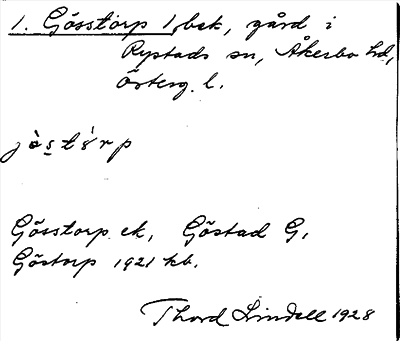 1. Gösstorp 1, bek, gård i
Rystads sn, Åkerbo hd,
Österg. l.
jòstó̤rp
Gösstorp ek, Göstad G,
Göstorp 1921 kb.
Thord Lindell 1928